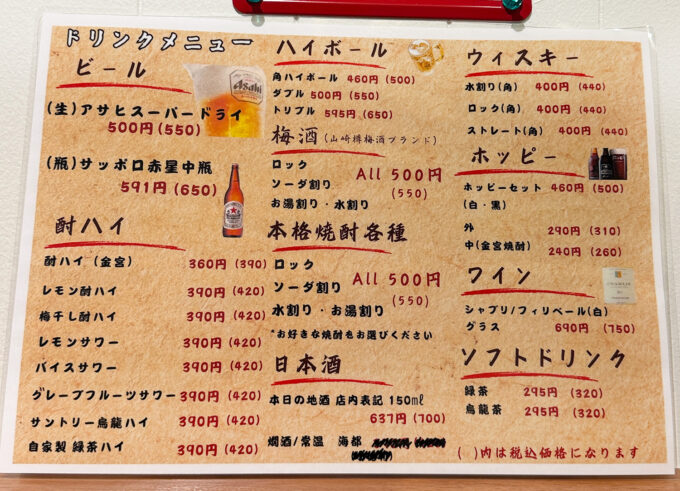 ドリンクメニュー
ビール
Asahi
(生)アサヒスーパードライ
500円(550)
(瓶)サッポロ赤星中瓶
591円(650)
酎ハイ
酎ハイ(金宮) 360円(390)
レモン酎ハイ 390円(420)
梅干し酎ハイ 390円(420)
レモンサワー 390円(420)
バイスサワー 390円(420)
グレープフルーツサワー 390円(420)
サントリー烏龍ハイ 390円(420)
自家製 緑茶ハイ 390円(420)
ハイボール
角ハイボール 460円(500)
ダブル 500円(550)
トリプル 595円(650)
梅酒(山崎樽梅酒ブランド)
ロック
ソーダ割り
お湯割り・水割り
All 500円
(550)
本格焼酎各種
ロック
ソーダ割り
水割り・お湯割り
All 500円
(550)
*お好きな焼酎もお選びください
日本酒
本日の地酒 店内表記 150㎖
637円(700)
燗酒/常温 海都
ウィスキー
水割り(角) 400円(440)
ロック(角) 400円(440)
ストレート(角) 400円(440)
ホッピー
ホッピーセット 460円(500)
(白・黒)
外 290円(310)
中(金宮焼酎) 240円(260)
ワイン
シャブリ/フィリベール(白)
グラス 690円(750)
ソフトドリンク
緑茶 295円(320)
烏龍茶 295円(320)
( )内は税込価格になります